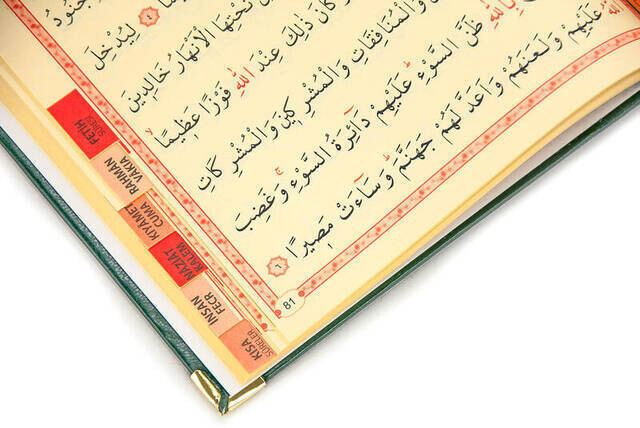 جُنُودُ
٤ لِيُدْخِلَ
تَحْتِهَا الْاَنْهَارُ خَالِدِينَ
كَانَ ذٰلِكَ عِنْدَ اللّٰهِ فَوْزًا عَظِيمًا
وَالْمُنَافِقَاتِ وَالْمُشْرِكِينَ وَالْمُشْرِكَاتِ
بِاللّٰهِ ظَنَّ السَّوْءِ عَلَيْهِمْ دَٓائِرَةُ السَّوْءِ وَغَضِبَ
عَلَيْهِمْ وَلَعَنَهُمْ وَاَعَدَّ لَهُمْ جَهَنَّمَ وَسَٓاءَتْ مَصِيرًا ٦
81
FETİH
SÛRESİ
RAHMAN
VAKIA
KIYAMET
CUMA
NAZİAT
KALEM
İNSAN
FECR
KISA
SÛRELER